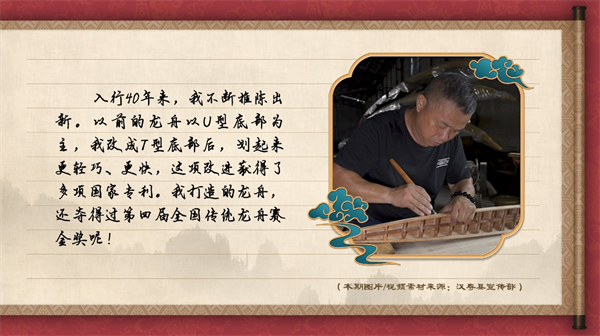 入行40年来，我不断推陈出
新。以前的龙舟以U型底部为
主，我改成T型底部后，划起来
更轻巧、更快，这项改进获得了
多项国家专利。我打造的龙舟，
还夺得过第四届全国传统龙舟赛
金奖呢！
（本期图片/视频素材来源：汉寿县宣传部）